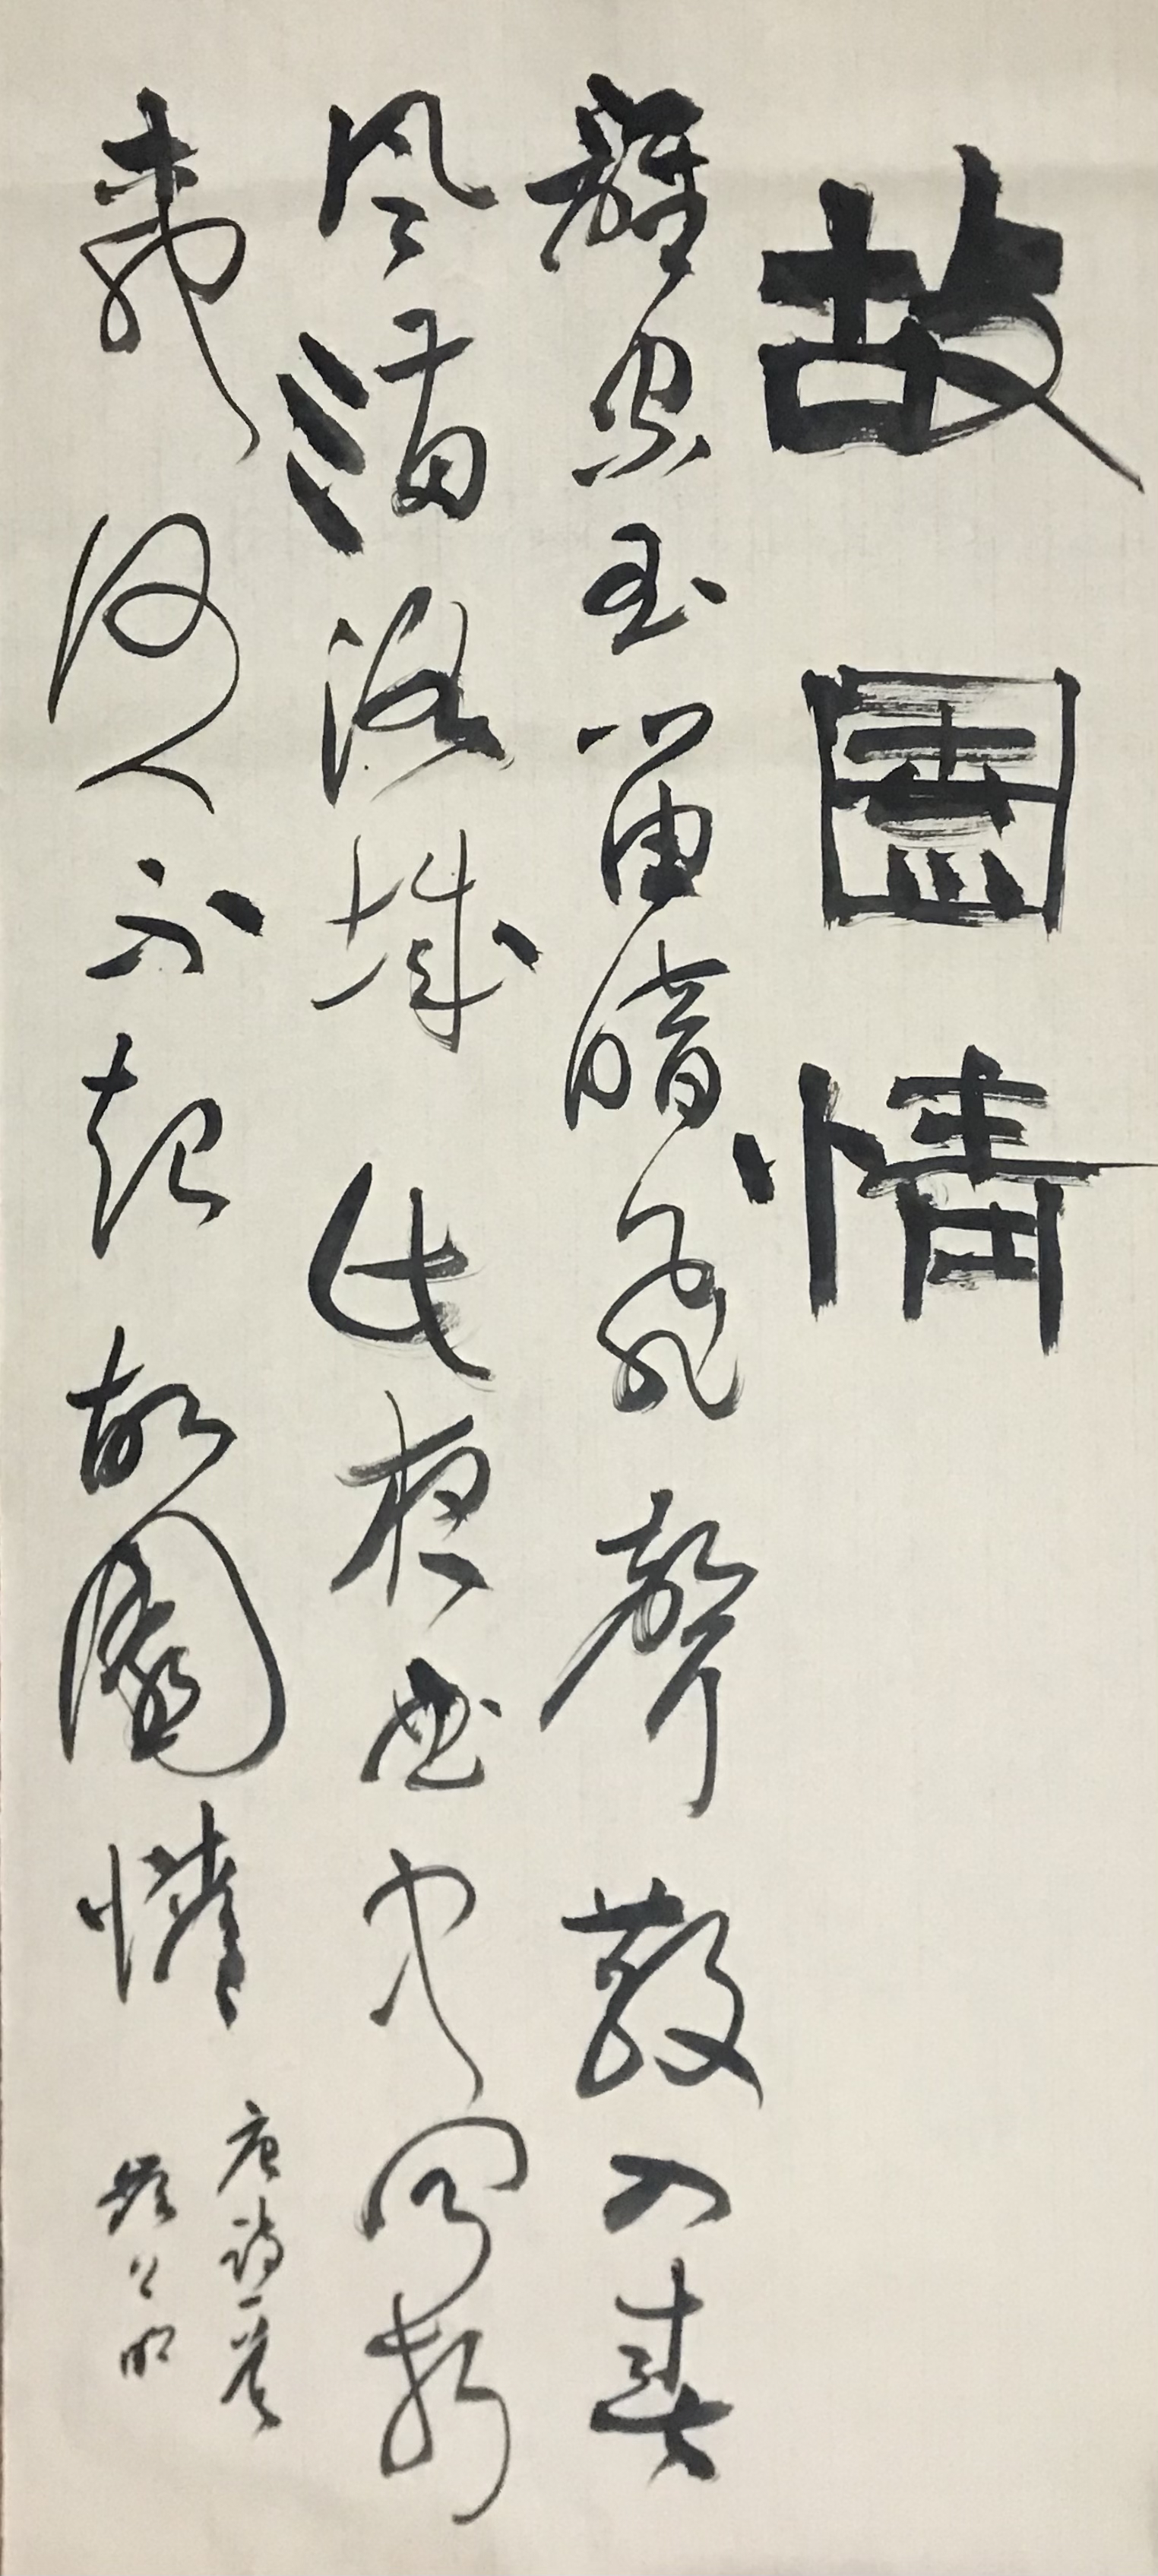 故園情
誰家玉笛暗飛聲散入春
风滿洛城此夜曲中聞折
柳何人不起故園情
唐詩一首